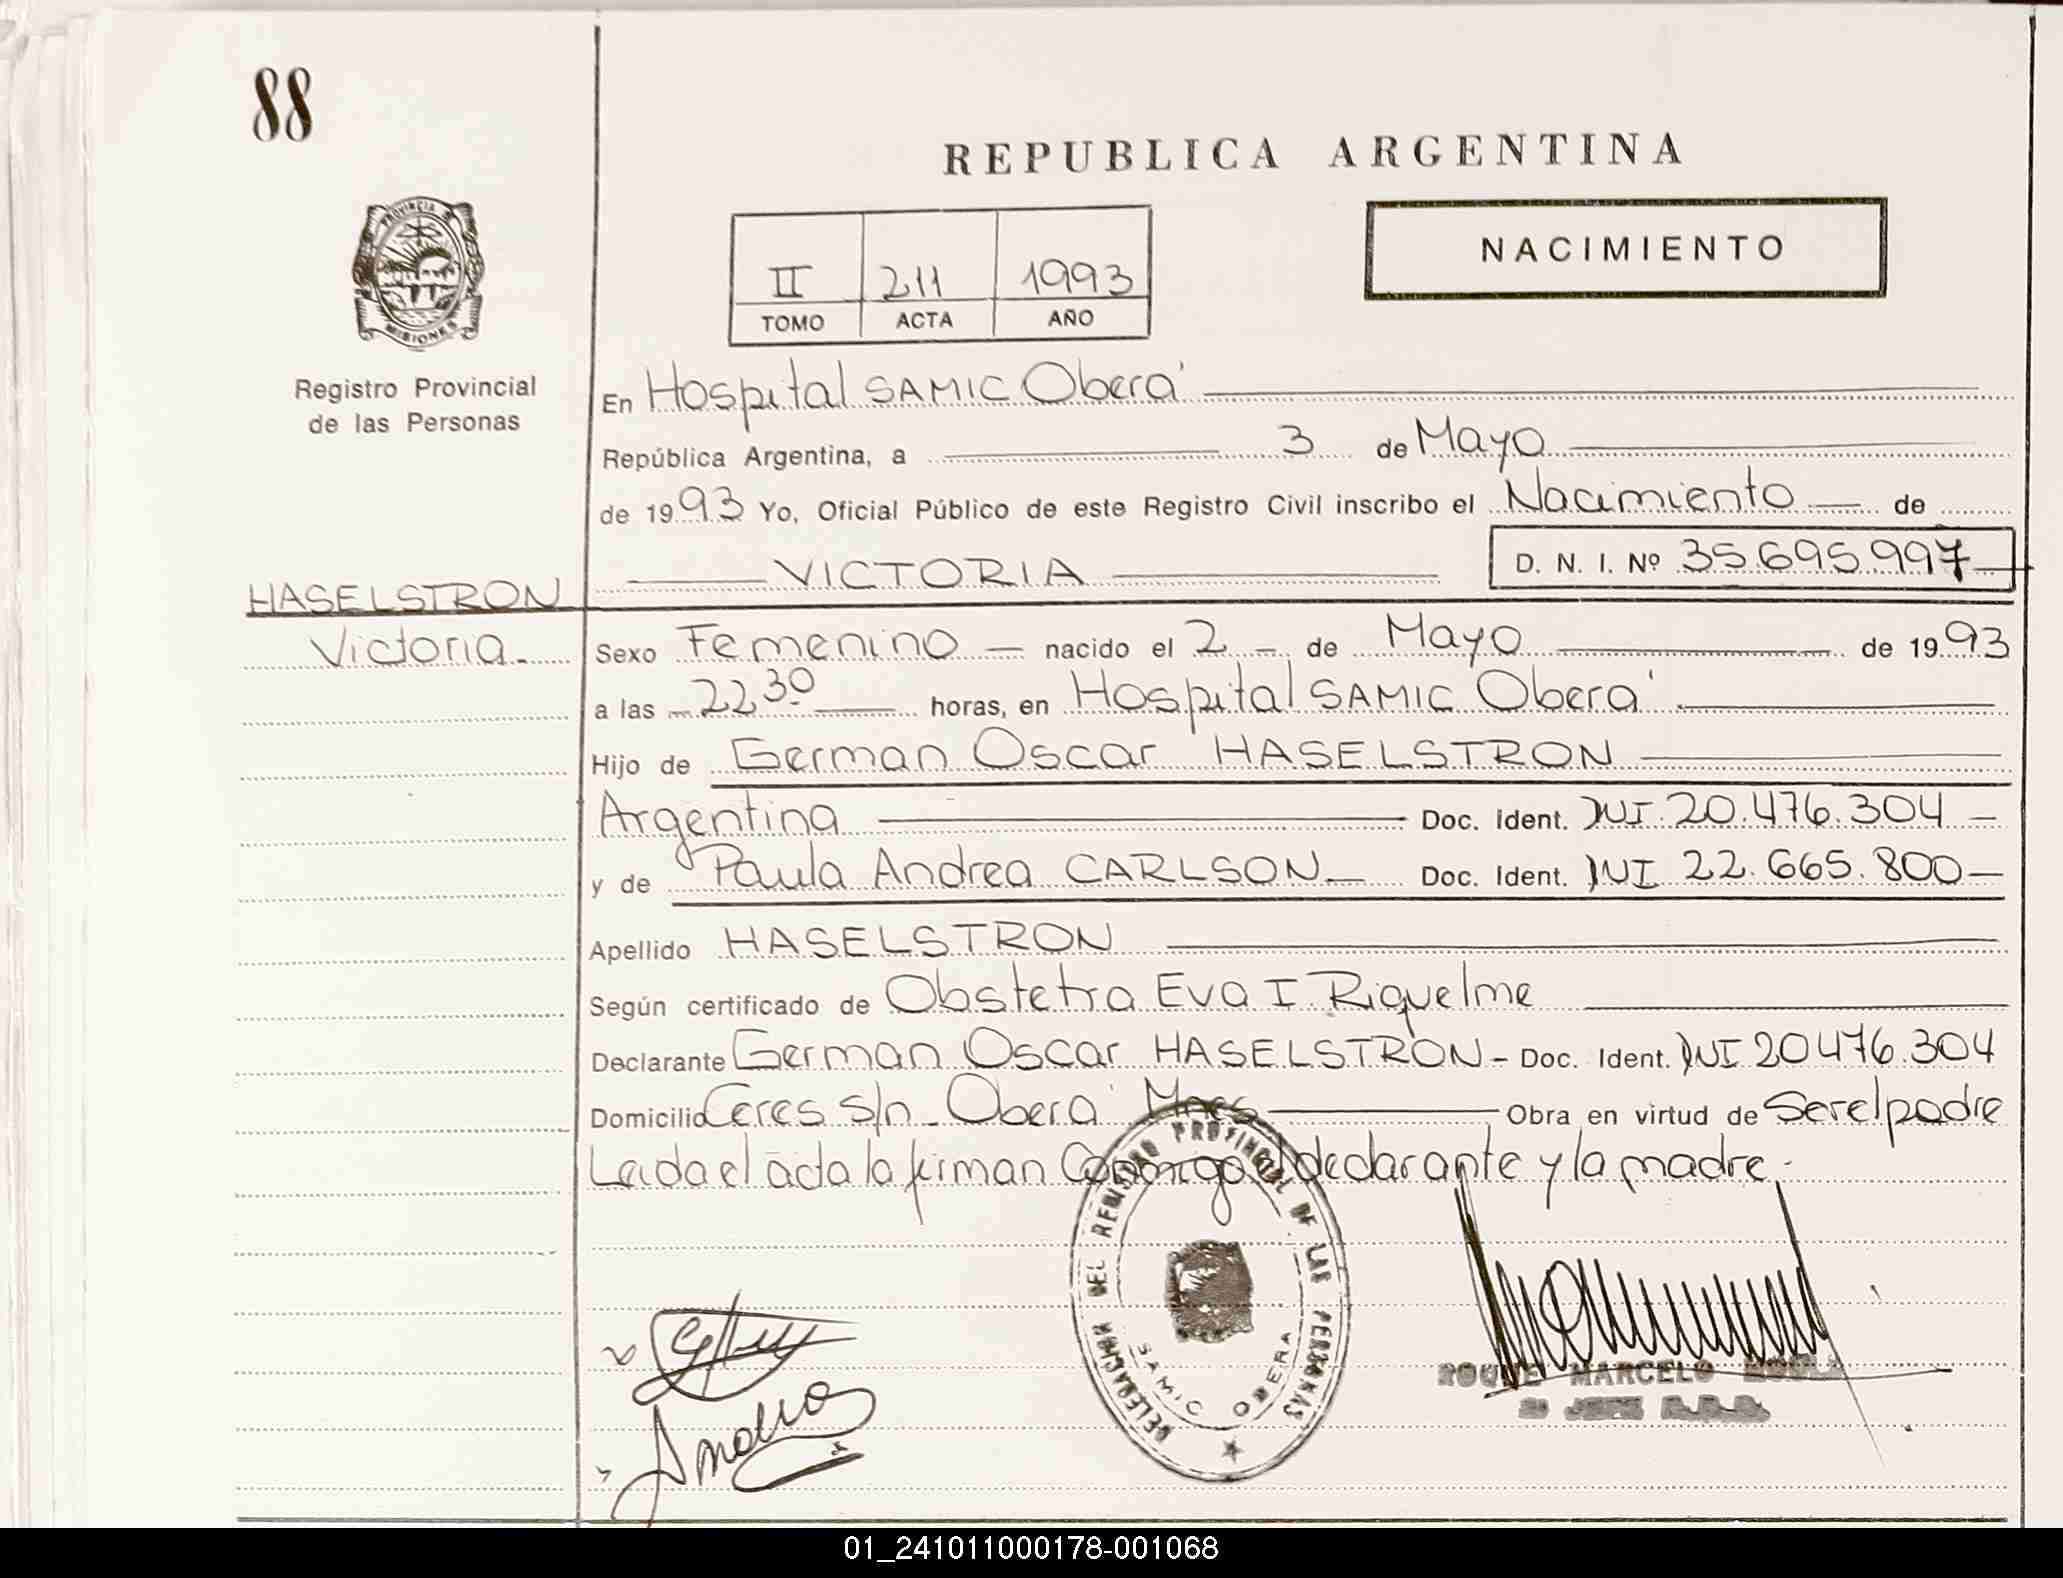 88
REPUBLICA ARGENTINA
PROVINCIA D
MISIONES
NACIMIENTO
II 211 1993
TOMO ACTA AÑO
Registro Provincial
de las Personas
En Hospital SAMIC Oberá
República Argentina, a 3 de Mayo
de 1993 Yo, Oficial Público de este Registro Civil inscribo el Nacimiento de
VICTORIA D. N. I. Nº 35.695.997
HASELSTRON
Victoria.
Sexo Femenino nacido el 2 de Mayo de 1993
a las 22 30 horas, en Hospital SAMIC Oberá
Hijo de German Oscar HASELSTRON
Argentina Doc. Ident. DNI. 20.476.304
y de Paula Andrea CARLSON Doc. Ident. DNI 22.665.800
Apellido HASELSTRON
Según certificado de Obstetra Eva I Riquelme
Declarante German Oscar HASELSTRON - Doc. Ident. DNI 20476.304
Domicilio Ceres s/n Oberá Mnes Obra en virtud de Ser el padre
Leida el acta la firman Conmigo el declarante y la madre.-
DELEGACION DEL REGISTRO PROVINCIAL DE LAS PERSONAS
SAMIC OBERA
Andrea
ROQUE MARCELO
01_241011000178-001068